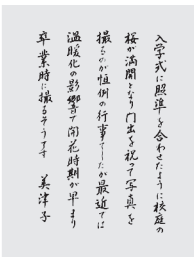 入学式に照準を合わせたように校庭の
桜が満開となり門出を祝って写真を
撮るのが恒例の行事でしたが最近では
温暖化の影響で開花時期が早まり
卒業時に撮るそうです　美津子